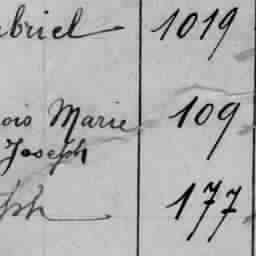 briel 1019
ois Marie 109
Joseph
ph 177